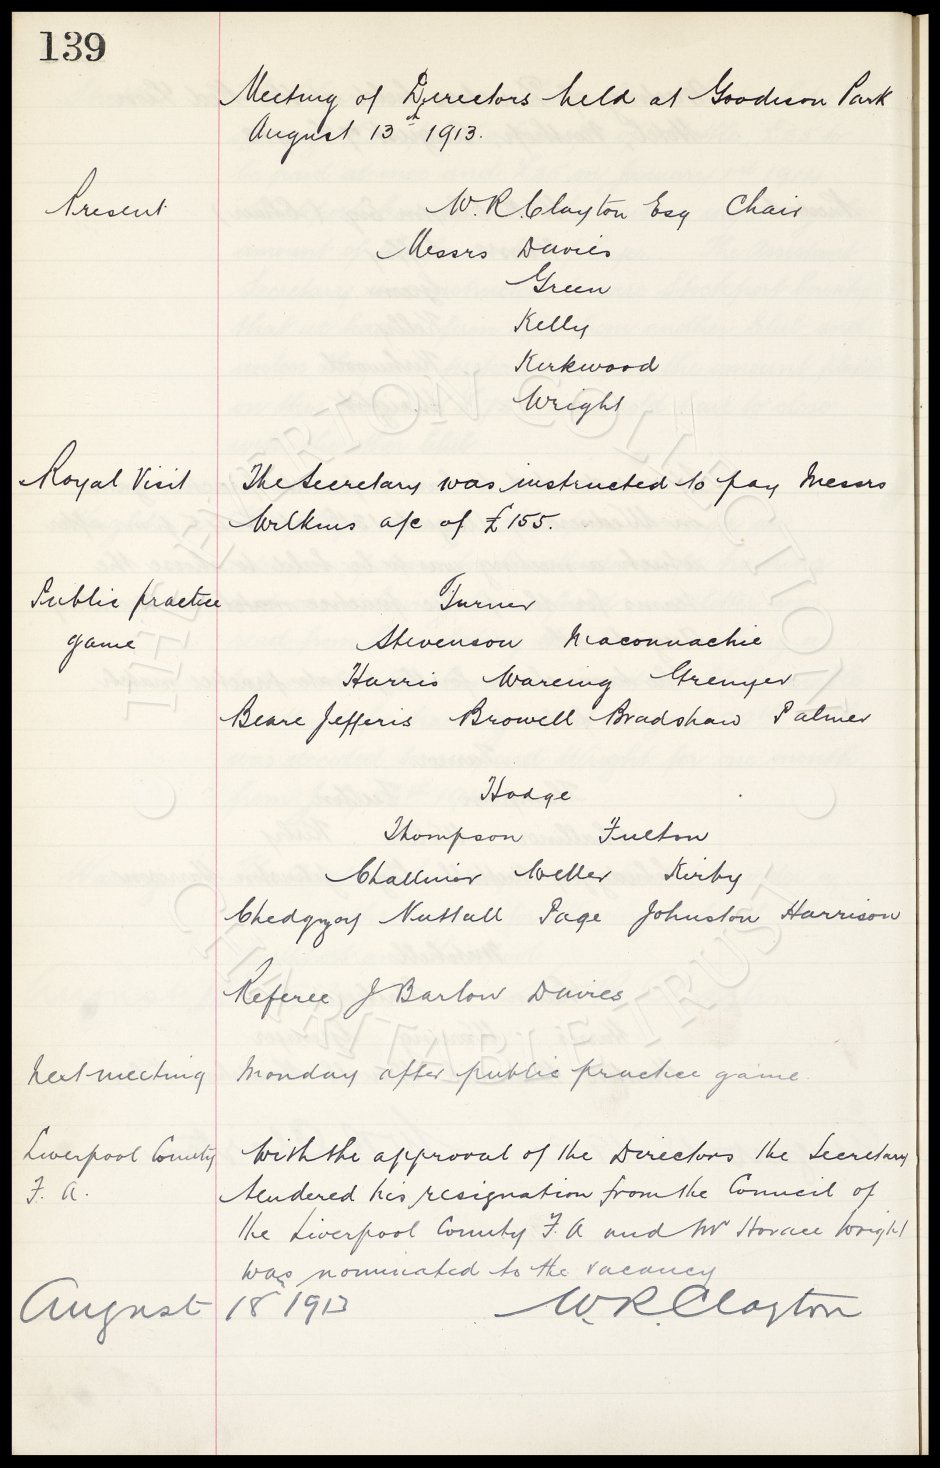 139
Meeting of Directors held at Goodison Park
August 13th 1913.
Present W. R. Clayton Esq Chair
Messrs Davies
Green
Kelly
Kirkwood
Wright
Royal Visit The Secretary was instructed to pay Messrs
Wilkins a/c of £155.
Public practice Turner
game Stevenson Maconnachie
Harris Wareing Grenyer
Beare Jefferis Browell Bradshaw Palmer
Hodge
Thompson Fulton
Challinor Weller Kirby
Chedgzoy Nuttall Page Johnston Harrison
Referee J Barlow Davies
Next meeting Monday after public practice game.
Liverpool County With the approval of the Directors the Secretary
F. A. tendered his resignation from the Council of
the Liverpool County F. A and Mr Horace Wright
was nominated to the vacancy
August 18th 1913 W. R. Clayton
THE EVERTON COLLECTION
CHARITABLE TRUST